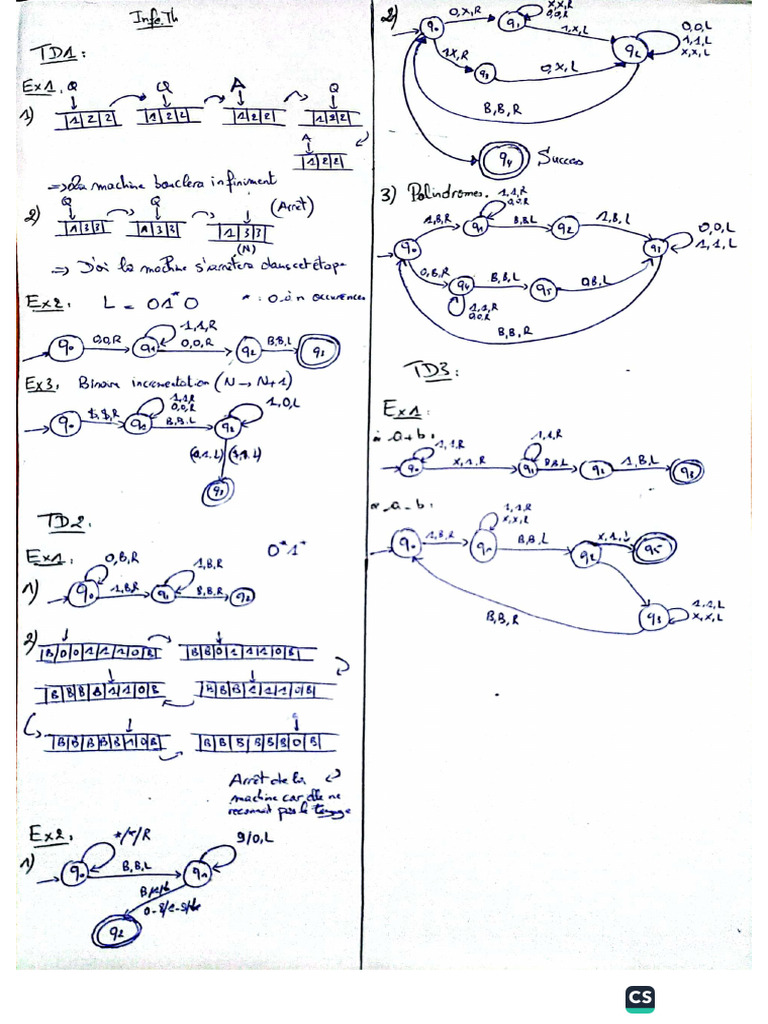 Info.Th
TD1:
Ex1.
Q Q A Q
1) 1 2 2 1 2 2 1 2 2 1 2 2
A
1 2 2
=> La machine bouclera infiniment
2) Q Q (Arrêt)
1 3 3 1 3 3 1 3 3
(N)
=> D'où la machine s'arrêtera dans cet étape
Ex2: L = 01*0 * : 0 à n occurences
q0 0,0,R q1 1,1,R 0,0,R q2 B,B,L q3
Ex3: Binaire incrementation (N → N+1)
q0 $,$,R q1 1,1,R 0,0,R B,B,L q2 1,0,L
(0,1,L) ($,$,L)
q3
TD2:
Ex1: 0*1*
1) q0 0,B,R 1,B,R q1 1,B,R B,B,R q2
2) B 0 0 1 1 1 0 B B B 0 1 1 1 0 B
B B B B 1 1 0 B B B B 1 1 1 0 B
B B B B B 1 0 B B B B B B B 0 B
Arrêt de la
machine car elle ne
reconnait pas le langage
Ex2:
1) q0 B,B,L q1 9/0,L
q2
2) q0 0,X,R q1 X,X,R 0,0,R 1,X,L q2 0,0,L
1,1,L
X,X,L
1,X,R q3 0,X,L
B,B,R
q4 Succes
3) Palindromes.
q0 1,B,R q1 1,1,R 0,0,R B,B,L q2 1,B,L q3 0,0,L
1,1,L
0,B,R q4 B,B,L q5 0,B,L
1,1,R
0,0,R
B,B,R
TD3:
Ex1:
a+b:
q0 1,1,R X,1,R q1 1,1,R B,B,L q2 1,B,L q3
a-b:
q0 1,B,R q1 1,1,R
B,B,L q2 q5
q3 1,1,L
X,X,L
B,B,R
CS